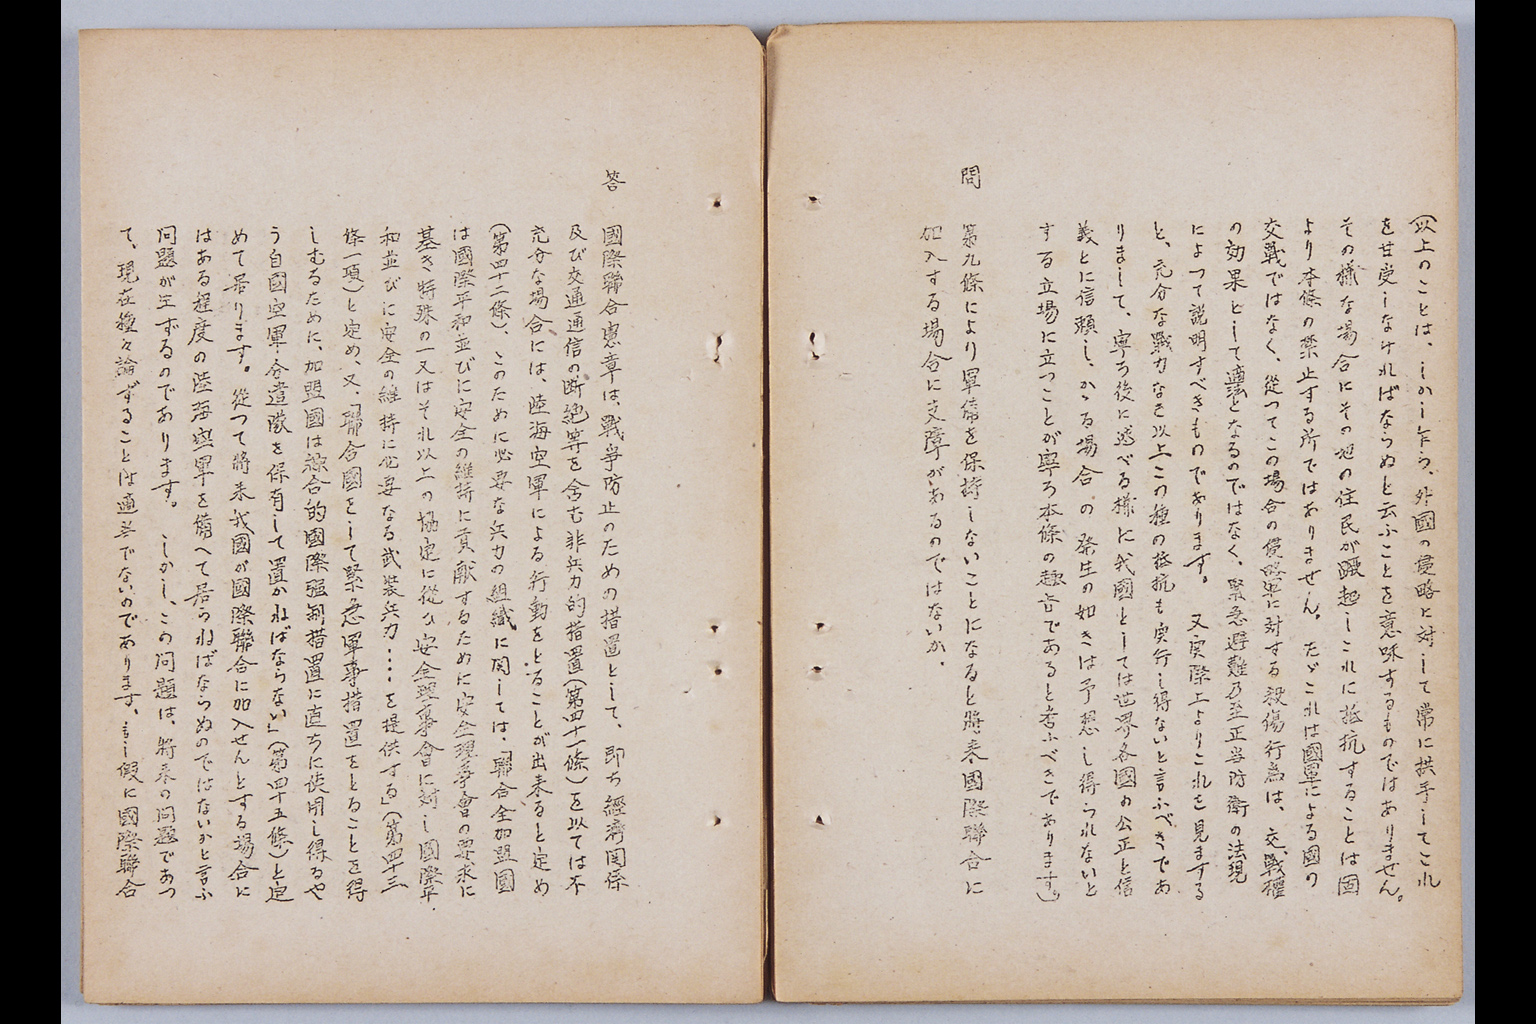 (以上のことは、しかし乍ら、外國の侵略に対して常に拱手してこれ
を甘受しなければならぬと云ふことを意味するものではありません。
その様な場合にその地の住民が蹶起しこれに抵抗することは固
より本條の禁止する所ではありません。たゞこれは國軍による國の
交戰ではなく、從つてこの場合の侵略軍に対する殺傷行為は、交戰權
の効果として適法となるのではなく、緊急避難乃至正当防衛の法現
によつて説明すべきものであります。又実際上よりこれを見ますする
と、充分な戰力なき以上この種の抵抗も実行し得ないと言ふべきであ
りまして、寧ろ後に述べる様に我國としては世界各國の公正と信
義とに信頼し、かゝる場合の発生の如きは予想し得られないと
する立場に立つことが寧ろ本條の趣旨であると考ふべきであります。)
問
第九條により軍備を保持しないことになると將來國際聯合に
加入する場合に支障があるのではないか。
答
國際聯合憲章は、戰爭防止のための措置として、即ち經濟関係
及び交通通信の断絶等を含む非兵力的措置(第四十一條)を以ては不
充分な場合には、陸海空軍による行動をとることが出來ると定め
(第四十二條)、このために必要な兵力の組織に関しては、「聯合全加盟國
は國際平和並びに安全の維持に貢献するために安全理事會の要求に
基き特殊の一又はそれ以上の協定に從ひ安全理事會に対し國際平
和並びに安全の維持に必要なる武裝兵力····を提供する」(第四十三
條一項)と定め、又、「聯合國をして緊急軍事措置をとることを得
しむるために、加盟國は綜合的國際强制措置に直ちに使用し得るや
う自國空軍分遣隊を保有して置かねばならない」(第四十五條)と定
めて居ります。從つて將來我國が國際聯合に加入せんとする場合に
はある程度の陸海空軍を備へて居らねばならぬのではないかと言ふ
问題が生ずるのであります。しかし、この问題は、將來の问題であつ
て、現在種々論ずることは適当でないのであります、もし假に國際聯合